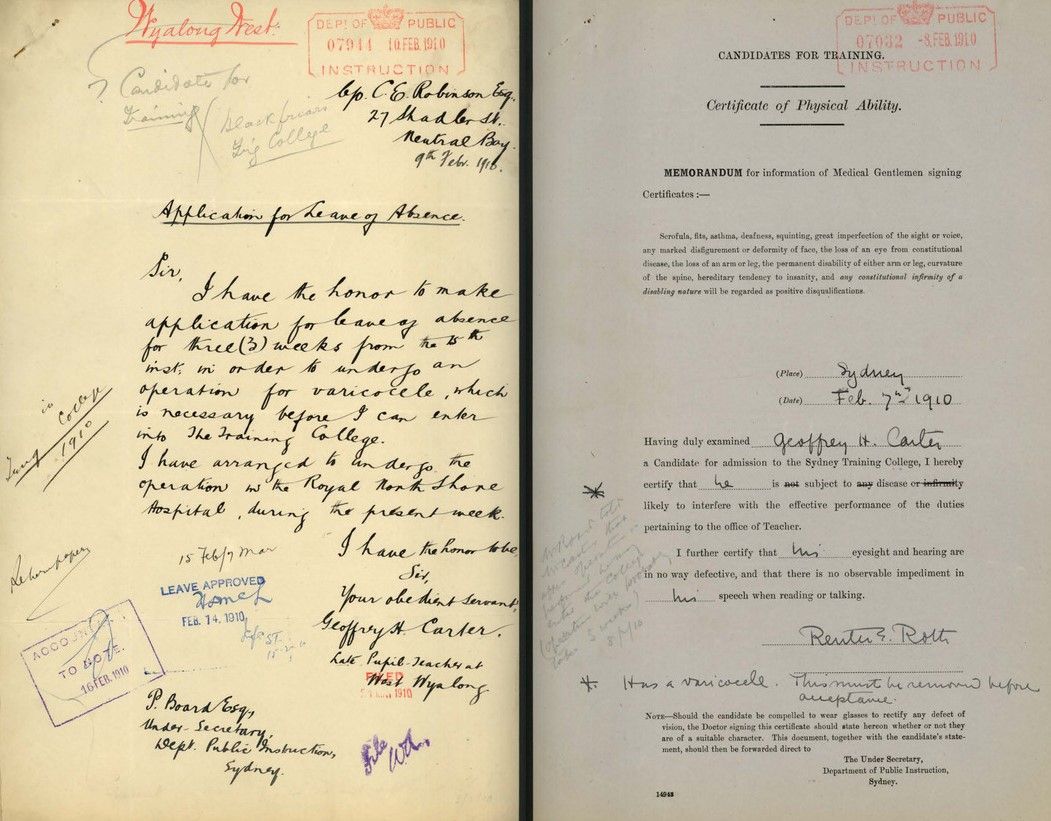 Wyalong West.
DEPT OF PUBLIC
07944 10.FEB.1910
INSTRUCTION
? Candidate for
Training
Blackfriars
Trg College
c/o. C. E. Robinson Esq.
27 Shadler St.
Neutral Bay.
9th Febr. 1910.
Application for Leave of Absence.
Sir,
I have the honor to make
application for leave of absence
for three (3) weeks from the 15th
inst; in order to undergo an
operation for varicocele, which
is necessary before I can enter
into The Training College.
I have arranged to undergo the
operation in the Royal North Shore
Hospital, during the present week.
in
College
1910
15 Feb/7 Mar
I have the honor to be
Sir,
Your obedient servant,
Geoffrey H. Carter.
Late Pupil-Teacher at
West Wyalong
LEAVE APPROVED
FEB. 14, 1910
ACCOUNT
TO NOTE.
16 FEB. 1910
FILED
1910
P. Board Esq.,
Under-Secretary,
Dept. Public Instruction,
Sydney.
File
DEPT OF PUBLIC
07032 -8.FEB.1910
INSTRUCTION
CANDIDATES FOR TRAINING.
Certificate of Physical Ability.
MEMORANDUM for information of Medical Gentlemen signing
Certificates :—
Scrofula, fits, asthma, deafness, squinting, great imperfection of the sight or voice,
any marked disfigurement or deformity of face, the loss of an eye from constitutional
disease, the loss of an arm or leg, the permanent disability of either arm or leg, curvature
of the spine, hereditary tendency to insanity, and any constitutional infirmity of a
disabling nature will be regarded as positive disqualifications.
(Place) Sydney
(Date) Feb. 7th 1910
Having duly examined Geoffrey H. Carter
a Candidate for admission to the Sydney Training College, I hereby
certify that he is not subject to any disease or infirmity
likely to interfere with the effective performance of the duties
pertaining to the office of Teacher.
I further certify that his eyesight and hearing are
in no way defective, and that there is no observable impediment in
his speech when reading or talking.
Reuter E. Roth
* Has a varicocele. This must be removed before
acceptance.
NOTE—Should the candidate be compelled to wear glasses to rectify any defect of
vision, the Doctor signing this certificate should state hereon whether or not they
are of a suitable character. This document, together with the candidate's state-
ment, should then be forwarded direct to
The Under Secretary,
Department of Public Instruction,
Sydney.
14948